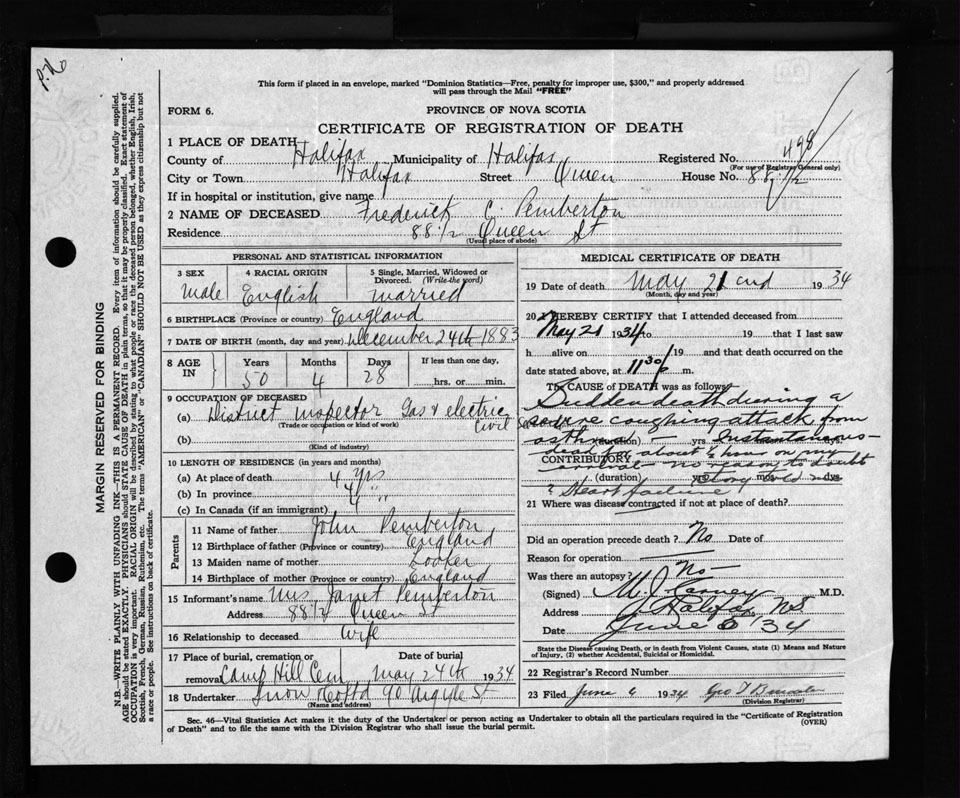 P. No
This form if placed in an envelope, marked "Dominion Statistics—Free, penalty for improper use, $300," and properly addressed
will pass through the Mail "FREE"
FORM 6.
PROVINCE OF NOVA SCOTIA
CERTIFICATE OF REGISTRATION OF DEATH
1 PLACE OF DEATH
County of Halifax Municipality of Halifax Registered No. 498
(For use of Registrar General only)
City or Town Halifax Street Queen House No. 88 1/2
If in hospital or institution, give name
2 NAME OF DECEASED Frederick C. Pemberton
Residence 88 1/2 Queen St
(Usual place of abode)
PERSONAL AND STATISTICAL INFORMATION
3 SEX 4 RACIAL ORIGIN 5 Single, Married, Widowed or
Divorced. (Write the word)
Male English married
6 BIRTHPLACE (Province or country) England
7 DATE OF BIRTH (month, day and year) December 24th 1883
8 AGE IN Years Months Days If less than one day,
50 4 28 hrs. or min.
9 OCCUPATION OF DECEASED
(a) District Inspector Gas & electric
(Trade or occupation or kind of work) Civil
(b)
(Kind of industry)
10 LENGTH OF RESIDENCE (in years and months)
(a) At place of death 4 yrs
(b) In province 4 " "
(c) In Canada (if an immigrant)
Parents
11 Name of father John Pemberton
12 Birthplace of father (Province or country) England
13 Maiden name of mother Looker
14 Birthplace of mother (Province or country) England
15 Informant's name Mrs Janet Pemberton
Address 88 1/2 Queen St
16 Relationship to deceased Wife
17 Place of burial, cremation or Date of burial
removal Camp Hill Cem May 24th 1934
18 Undertaker Snow Co Ltd 90 Argyle St
(Name and address)
MEDICAL CERTIFICATE OF DEATH
19 Date of death May 21 1934
(Month, day and year)
20 I HEREBY CERTIFY that I attended deceased from
May 21 1934 to 19 that I last saw
h alive on 19 and that death occurred on the
date stated above, at 11 30 p m.
The CAUSE of DEATH was as follows
Sudden death during a
severe coughing attack from
asthma — Instantaneous —
(duration) yrs. mos. dys.
dead about 1/2 hour on my
CONTRIBUTORY
arrival — no reason to doubt
(duration) yrs. mos. dys.
story told me
? Heart failure
21 Where was disease contracted if not at place of death?
Did an operation precede death? No Date of
Reason for operation
Was there an autopsy? No —
(Signed) M. J. Carney M.D.
Address Halifax N.S
Date June 6 '34
State the Disease causing Death, or in death from Violent Causes, state (1) Means and Nature
of Injury, (2) whether Accidental, Suicidal or Homicidal.
22 Registrar's Record Number
23 Filed June 6 1934 Geo T
(Division Registrar)
Sec. 46—Vital Statistics Act makes it the duty of the Undertaker or person acting as Undertaker to obtain all the particulars required in the "Certificate of Registration
of Death" and to file the same with the Division Registrar who shall issue the burial permit.
(OVER)
MARGIN RESERVED FOR BINDING
N.B.—WRITE PLAINLY WITH UNFADING INK—THIS IS A PERMANENT RECORD. Every item of information should be carefully supplied.
AGE should be stated EXACTLY. PHYSICIANS should STATE CAUSE OF DEATH in plain terms, so that it may be properly classified. Exact statement of
OCCUPATION is very important. RACIAL ORIGIN will be described by stating to what people or race the deceased person belonged, whether English, Irish,
Scottish, French, German, Russian, Ruthenian, etc. The terms "AMERICAN" or "CANADIAN" SHOULD NOT BE USED as they express citizenship but not
a race or people. See instructions on back of certificate.